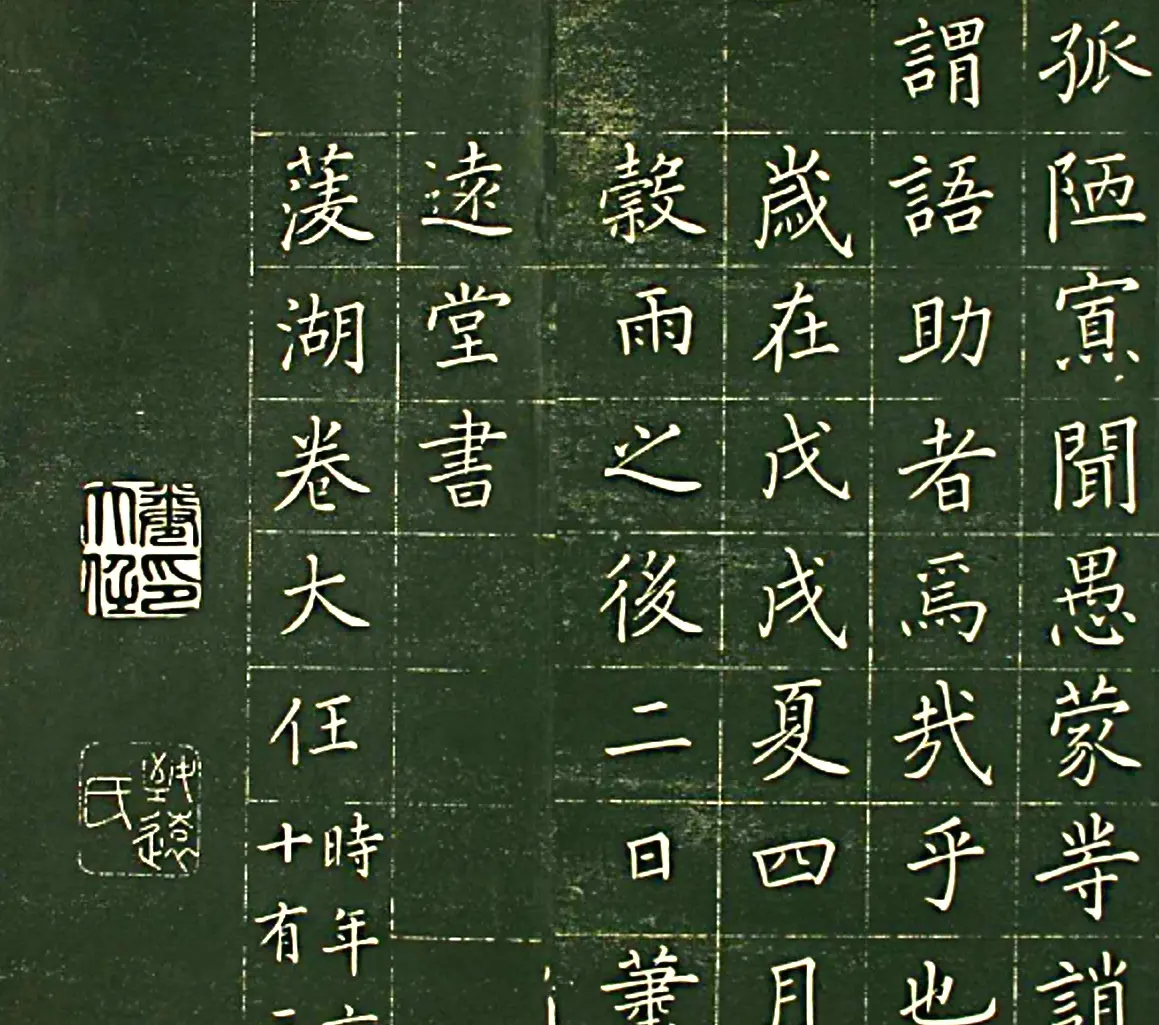 孤陋寡聞愚蒙等誚
謂語助者焉哉乎也
歲在戊戌夏四月
穀雨之後二日
遠堂書
蓤湖卷大任
時年
十有
卷印大任